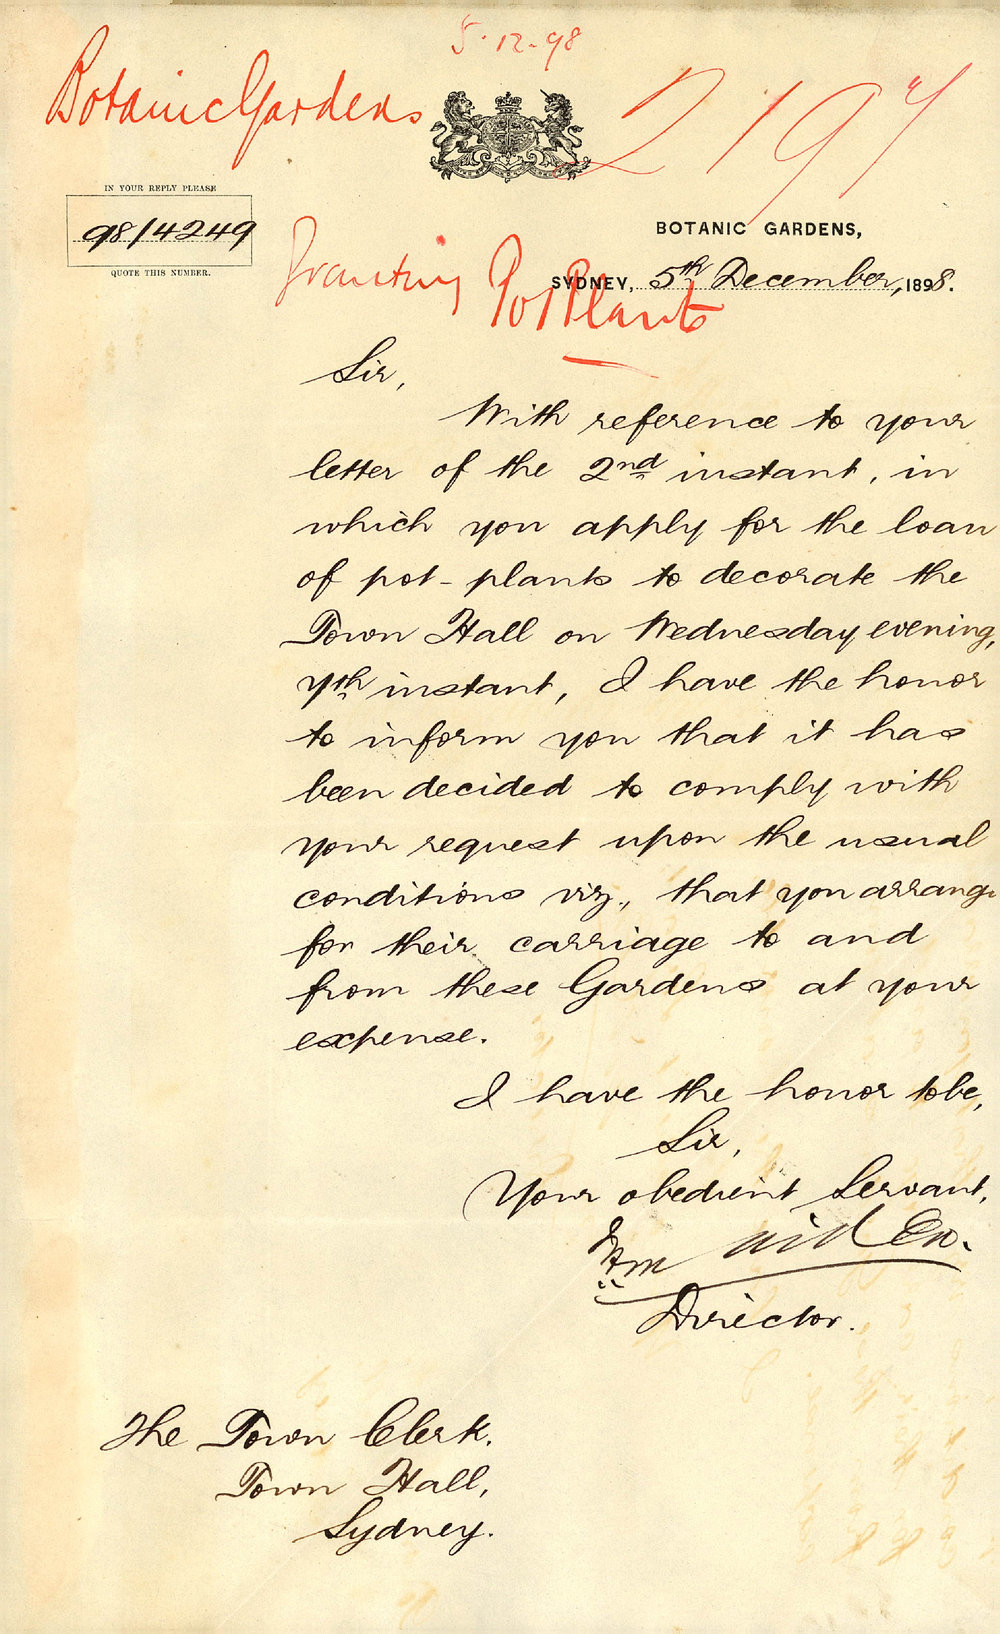 5.12.98
Botanic Gardens
219
IN YOUR REPLY PLEASE
98/4249
QUOTE THIS NUMBER.
BOTANIC GARDENS,
SYDNEY, 5th December, 1898.
Granting Pot Plants
Sir,
With reference to your
letter of the 2nd instant, in
which you apply for the loan
of pot-plants to decorate the
Town Hall on Wednesday evening,
7th instant, I have the honor
to inform you that it has
been decided to comply with
your request upon the usual
conditions viz., that you arrange
for their carriage to and
from these Gardens at your
expense.
I have the honor to be,
Sir,
Your obedient Servant,
Director.
The Town Clerk.
Town Hall,
Sydney.